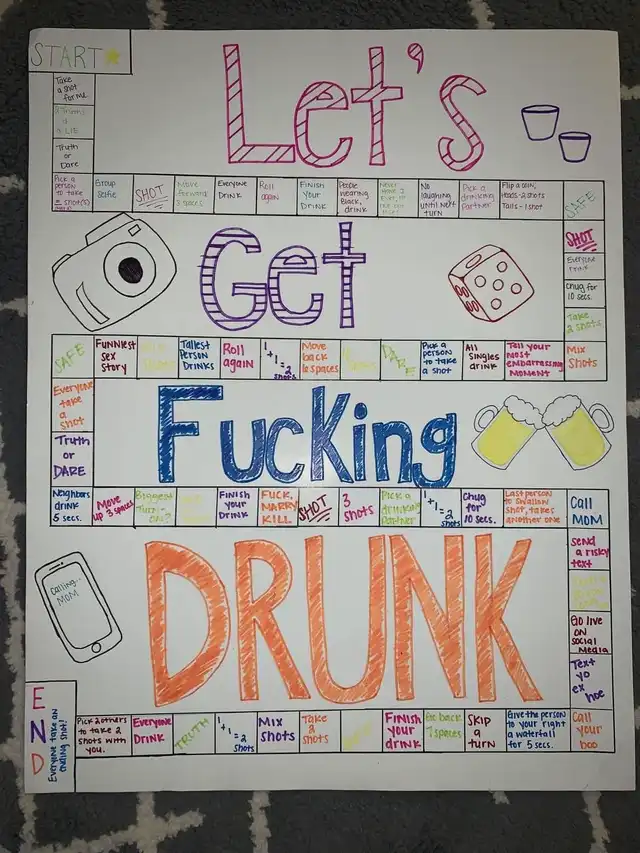 START
Take
a shot
for me
2 Truths
&
a LIE
Truth
or
Dare
Pick a
person
to take
Group
Selfie
SHOT
Move
forward
3 spaces
Everyone
DRINK
Roll
again
FINISH
Your
DRINK
People
wearing
Black,
drink
Never
Have I
Ever,
No
laughing
until next
turn
Pick a
drinking
partner
Flip a coin,
Heads-2 shots
Tails-1 shot
SAFE
Let's
SHOT
Everyone
Drink
Chug for
10 secs.
Take
2 shots
Get
SAFE
FUNNIEST
Sex
Story
Tallest
Person
DRINKS
Roll
again
1
+1=2
shots
Move
back
6 spaces
DARE
Pick a
person
to take
a shot
All
Singles
drink
Tell your
most
embarrassing
MOMENT
Mix
Shots
Everyone
take
a
shot
Truth
or
DARE
Fucking
Neighbors
drink
5 secs.
Move
up 3 spaces
Biggest
Turn-
on?
FINISH
your
DRINK
FUCK,
MARRY
KILL
SHOT
3
shots
Pick a
drinking
Partner
1
+1=2
shots
Chug
for
10 secs.
Last person
to swallow
shot, takes
another one
Call
MOM
Send
a risky
text
Go live
on
social
Media
Text
yo
ex
hoe
Calling..
MOM
DRUNK
END
Everyone take an
ending shot!
Pick 2 others
to take 2
shots with
you.
Everyone
DRINK
TRUTH
1
+1=2
shots
Mix
shots
Take
2
shots
FINISH
your
drink
Go back
7 spaces
SKIP
a
turn
Give the person
to your right
a waterfall
for 5 secs.
Call
your
boo